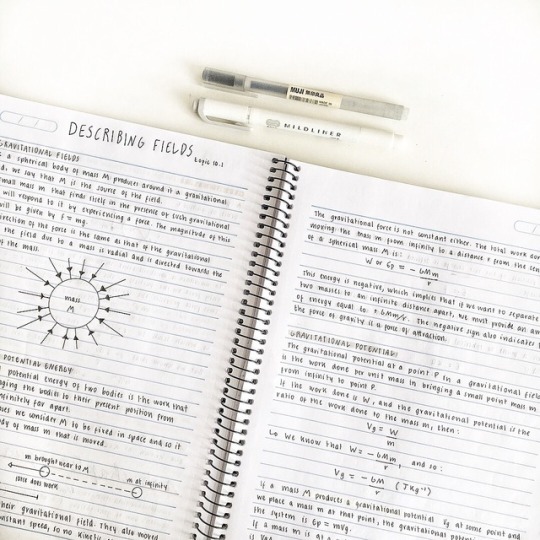 MUJ
MILDLINER
DESCRIBING FIELDS
Topic 10.1
GRAVITATIONAL FIELDS
a spherical body of mass M produces around it a gravitational
d, we say that M is the source of the field.
small mass m that finds itself in the presence of such gravitational
will respond to it by experiencing a force. The magnitude of this
will be given by F = mg.
direction of the force is the same as that of the gravitational
the field due to a mass is radial and is directed towards the
of the mass.
mass
M
POTENTIAL ENERGY
potential energy of two bodies is the work that
nging the bodies to their present position from
nfinitely far apart.
we consider M to be fixed in space and so it
dy of mass m that is moved.
m brought near to M
some does work
m at infinity
their gravitational field. They also moved
constant speed, so no kinetic
The gravitational force is not constant either. The total work don
moving the mass m from infinity to a distance r from the cen
of a spherical mass M is:
W or Ep = - GMm
r
This energy is negative, which implies that if we want to separate
two masses to an infinite distance apart, we must provide an am
of energy equal to + GMm/r. The negative sign also indicates
the force of gravity is a force of attraction.
GRAVITATIONAL POTENTIAL
The gravitational potential at a point P in a gravitational field
is the work done per unit mass in bringing a small point mass m
from infinity to point P.
If the work done is W, and the gravitational potential is the
ratio of the work done to the mass m, then:
Vg = W
m
↳ We know that W = - GMm, and so:
r
Vg = - GM (JKg⁻¹)
r
If a mass M produces a gravitational potential Vg at some point and
we place a mass m at that point, the gravitational potenti
the system is Ep = mVg.
If a mass m is at a